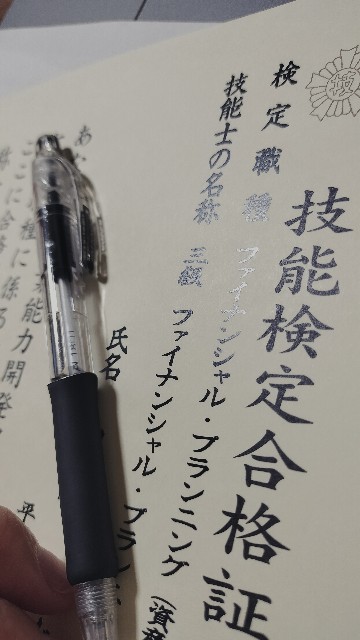 技
技能検定合格証
検定職種 ファイナンシャル・プランニング(資産
技能士の名称 三級 ファイナンシャル・プラン
氏名
能力開発
種に係る
に合格
平